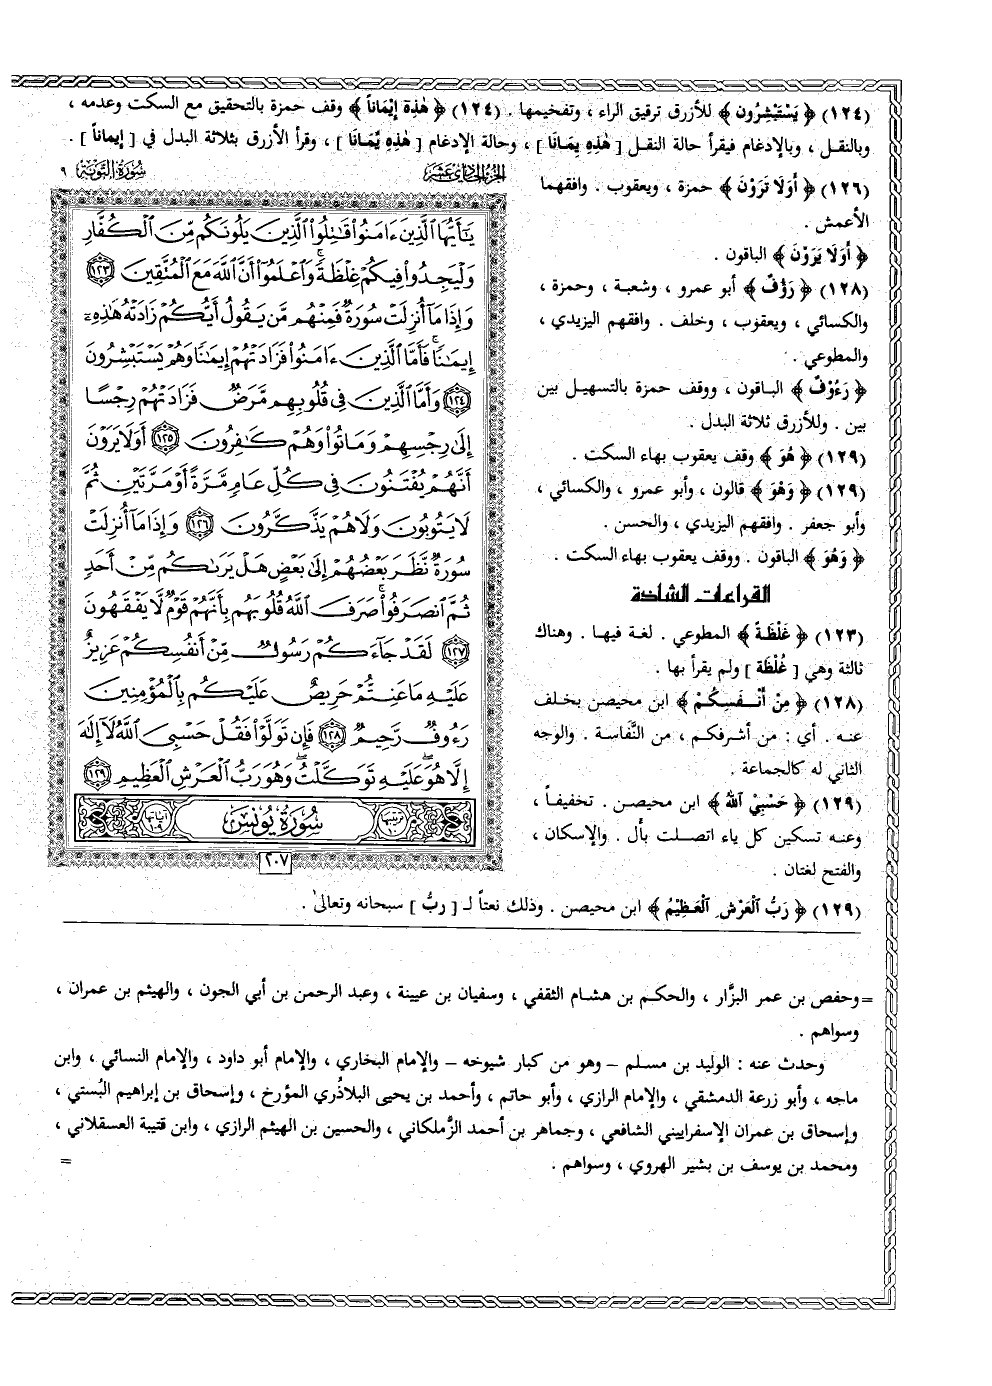 (١٢٤) ﴿ يَسْتَبْشِرُون ﴾ للأزرق ترقيق الراء ، وتفخيمها . (١٢٤) ﴿ هٰذِهِ إِيْمَاناً ﴾ وقف حمزة بالتحقيق مع السكت وعدمه ،
وبالنقل ، وبالإدغام فيقرأ حالة النقل [ هٰذِهِ يمَانَا ] ، وحالة الإدغام [ هٰذِه يِّمَانَا ] ، وقرأ الأزرق بثلاثة البدل في [ إيماناً ] .
الجزء الحادي عشر
سُورَة التوبَة ٩
(١٢٦) ﴿ أَوَلَا تَرَوْنَ ﴾ حمزة ، ويعقوب . وافقهما
الأعمش .
﴿ أَوَلَا يَرَوْنَ ﴾ الباقون .
(١٢٨) ﴿ رَؤُفٌ ﴾ أبو عمرو ، وشعبة ، وحمزة ،
والكسائي ، ويعقوب ، وخلف . وافقهم اليزيدي ،
والمطوعي .
﴿ رَءُوْفٌ ﴾ الباقون ، ووقف حمزة بالتسهيل بين
بين . وللأزرق ثلاثة البدل .
(١٢٩) ﴿ هُوَ ﴾ وقف يعقوب بهاء السكت .
(١٢٩) ﴿ وَهْوَ ﴾ قالون ، وأبو عمرو ، والكسائي ،
وأبو جعفر . وافقهم اليزيدي ، والحسن .
﴿ وَهُوَ ﴾ الباقون . ووقف يعقوب بهاء السكت .
القراءات الشاذة
(١٢٣) ﴿ غَلْظَةً ﴾ المطوعي . لغة فيها . وهناك
ثالثة وهي [ غُلْظَة ] ولم يقرأ بها .
(١٢٨) ﴿ مِنْ أَنْـفَسِكُمْ ﴾ ابن محيصن بخلف
عنه . أي : من أشرفكم ، من النَّفاسة . والوجه
الثاني له كالجماعة .
(١٢٩) ﴿ حَسْبِيْ اللهُ ﴾ ابن محيصن . تخفيفاً ،
وعنه تسكين كل ياء اتصلت بأل . والإسكان ،
والفتح لغتان .
يَٰٓأَيُّهَا ٱلَّذِينَ ءَامَنُوا۟ قَٰتِلُوا۟ ٱلَّذِينَ يَلُونَكُم مِّنَ ٱلْكُفَّارِ
وَلْيَجِدُوا۟ فِيكُمْ غِلْظَةً ۚ وَٱعْلَمُوٓا۟ أَنَّ ٱللَّهَ مَعَ ٱلْمُتَّقِينَ ١٢٣
وَإِذَا مَآ أُنزِلَتْ سُورَةٌ فَمِنْهُم مَّن يَقُولُ أَيُّكُمْ زَادَتْهُ هَٰذِهِۦٓ
إِيمَٰنًا ۚ فَأَمَّا ٱلَّذِينَ ءَامَنُوا۟ فَزَادَتْهُمْ إِيمَٰنًا وَهُمْ يَسْتَبْشِرُونَ
١٢٤ وَأَمَّا ٱلَّذِينَ فِى قُلُوبِهِم مَّرَضٌ فَزَادَتْهُمْ رِجْسًا
إِلَىٰ رِجْسِهِمْ وَمَاتُوا۟ وَهُمْ كَٰفِرُونَ ١٢٥ أَوَلَا يَرَوْنَ
أَنَّهُمْ يُفْتَنُونَ فِى كُلِّ عَامٍ مَّرَّةً أَوْ مَرَّتَيْنِ ثُمَّ
لَا يَتُوبُونَ وَلَا هُمْ يَذَّكَّرُونَ ١٢٦ وَإِذَا مَآ أُنزِلَتْ
سُورَةٌ نَّظَرَ بَعْضُهُمْ إِلَىٰ بَعْضٍ هَلْ يَرَىٰكُم مِّنْ أَحَدٍ
ثُمَّ ٱنصَرَفُوا۟ ۚ صَرَفَ ٱللَّهُ قُلُوبَهُم بِأَنَّهُمْ قَوْمٌ لَّا يَفْقَهُونَ
١٢٧ لَقَدْ جَآءَكُمْ رَسُولٌ مِّنْ أَنفُسِكُمْ عَزِيزٌ
عَلَيْهِ مَا عَنِتُّمْ حَرِيصٌ عَلَيْكُم بِٱلْمُؤْمِنِينَ
رَءُوفٌ رَّحِيمٌ ١٢٨ فَإِن تَوَلَّوْا۟ فَقُلْ حَسْبِىَ ٱللَّهُ لَآ إِلَٰهَ
إِلَّا هُوَ ۖ عَلَيْهِ تَوَكَّلْتُ ۖ وَهُوَ رَبُّ ٱلْعَرْشِ ٱلْعَظِيمِ ١٢٩
ترتيبها ١٠ سُورَةُ يُونُسَ آياتها ١٠٩
٢٠٧
(١٢٩) ﴿ رَبُّ اْلعَرْشِ اْلعَظِيْمُ ﴾ ابن محيصن . وذلك نعتاً لـ [ ربُّ ] سبحانه وتعالىٰ .
= وحفص بن عمر البزَّار ، والحكم بن هشام الثقفي ، وسفيان بن عيينة ، وعبد الرحمن بن أبي الجون ، والهيثم بن عمران ،
وسواهم .
وحدث عنه : الوليد بن مسلم – وهو من كبار شيوخه – والإمام البخاري ، والإمام أبو داود ، والإمام النسائي ، وابن
ماجه ، وأبو زرعة الدمشقي ، والإمام الرازي ، وأبو حاتم ، وأحمد بن يحيى البلاذُري المؤرخ ، وإسحاق بن إبراهيم البُستي ،
وإسحاق بن عمران الإسفراييني الشافعي ، وجماهر بن أحمد الزَّملكاني ، والحسين بن الهيثم الرازي ، وابن قتيبة العسقلاني ،
ومحمد بن يوسف بن بشير الهروي ، وسواهم . =